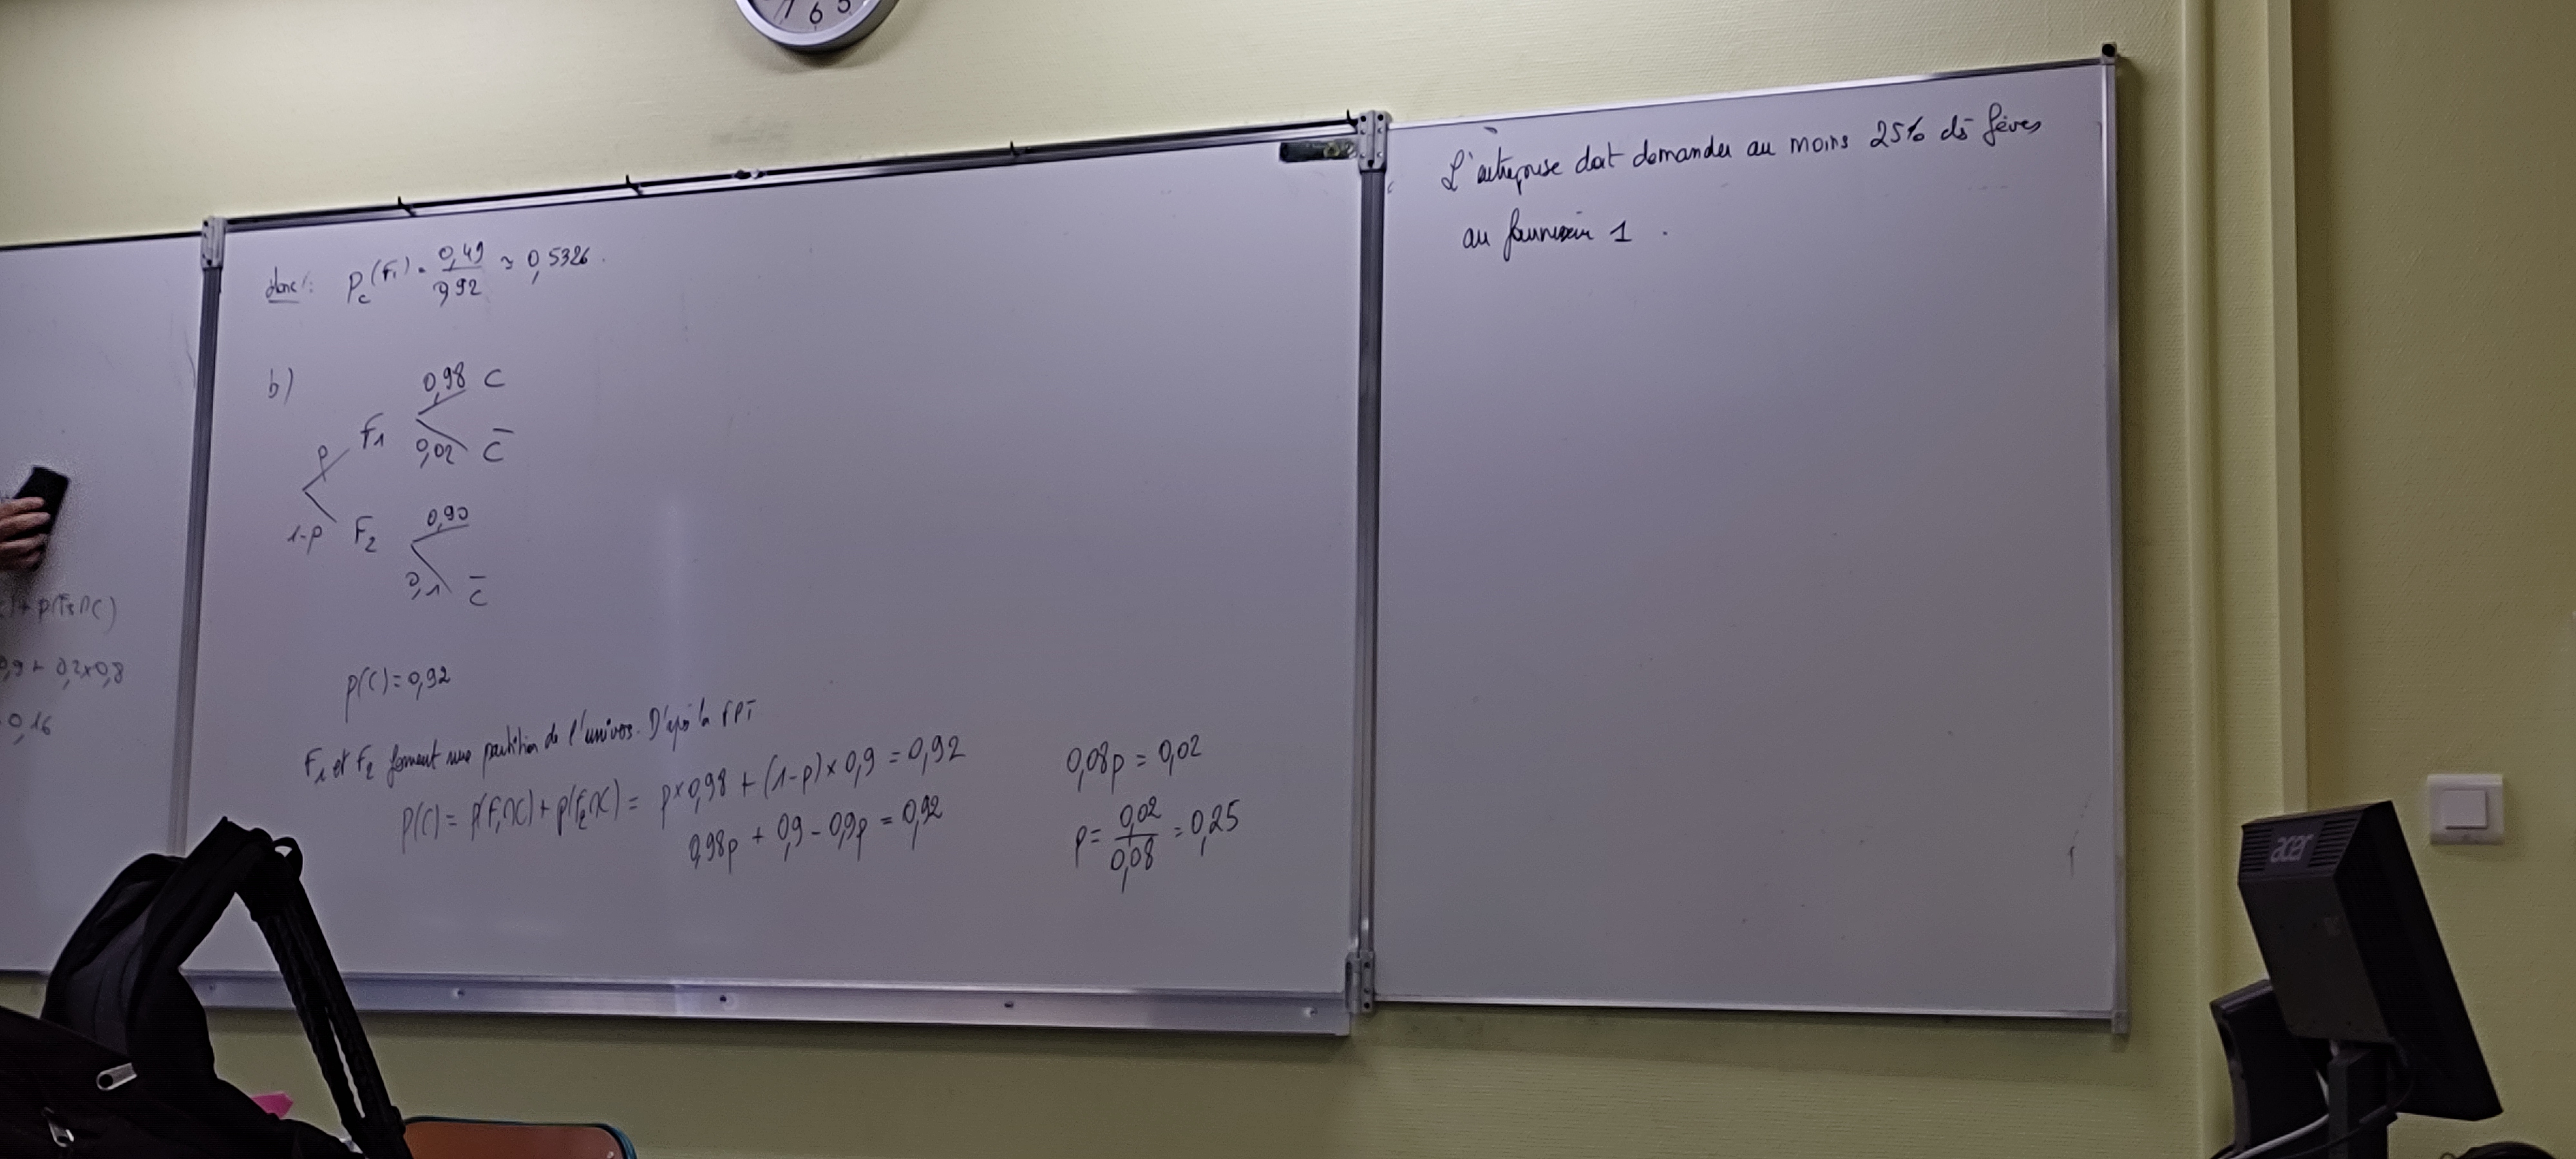 7 6 5
) + p(F3∩C)
0,9 + 0,2x0,8
0,16
donc : Pc(F1) = 0,49/0,92 ≈ 0,5326.
b)
0,98 C
p F1
0,02 C̄
1-p F2 0,90
0,1 C̄
p(C) = 0,92
F1 et F2 forment une partition de l'univers. D'après la FPT
p(C) = p(F1∩C) + p(F2∩C) = p x 0,98 + (1-p) x 0,9 = 0,92
0,98p + 0,9 - 0,9p = 0,92
0,08p = 0,02
p = 0,02/0,08 = 0,25
L'entreprise doit demander au moins 25% des fèves
au fournisseur 1.
acer